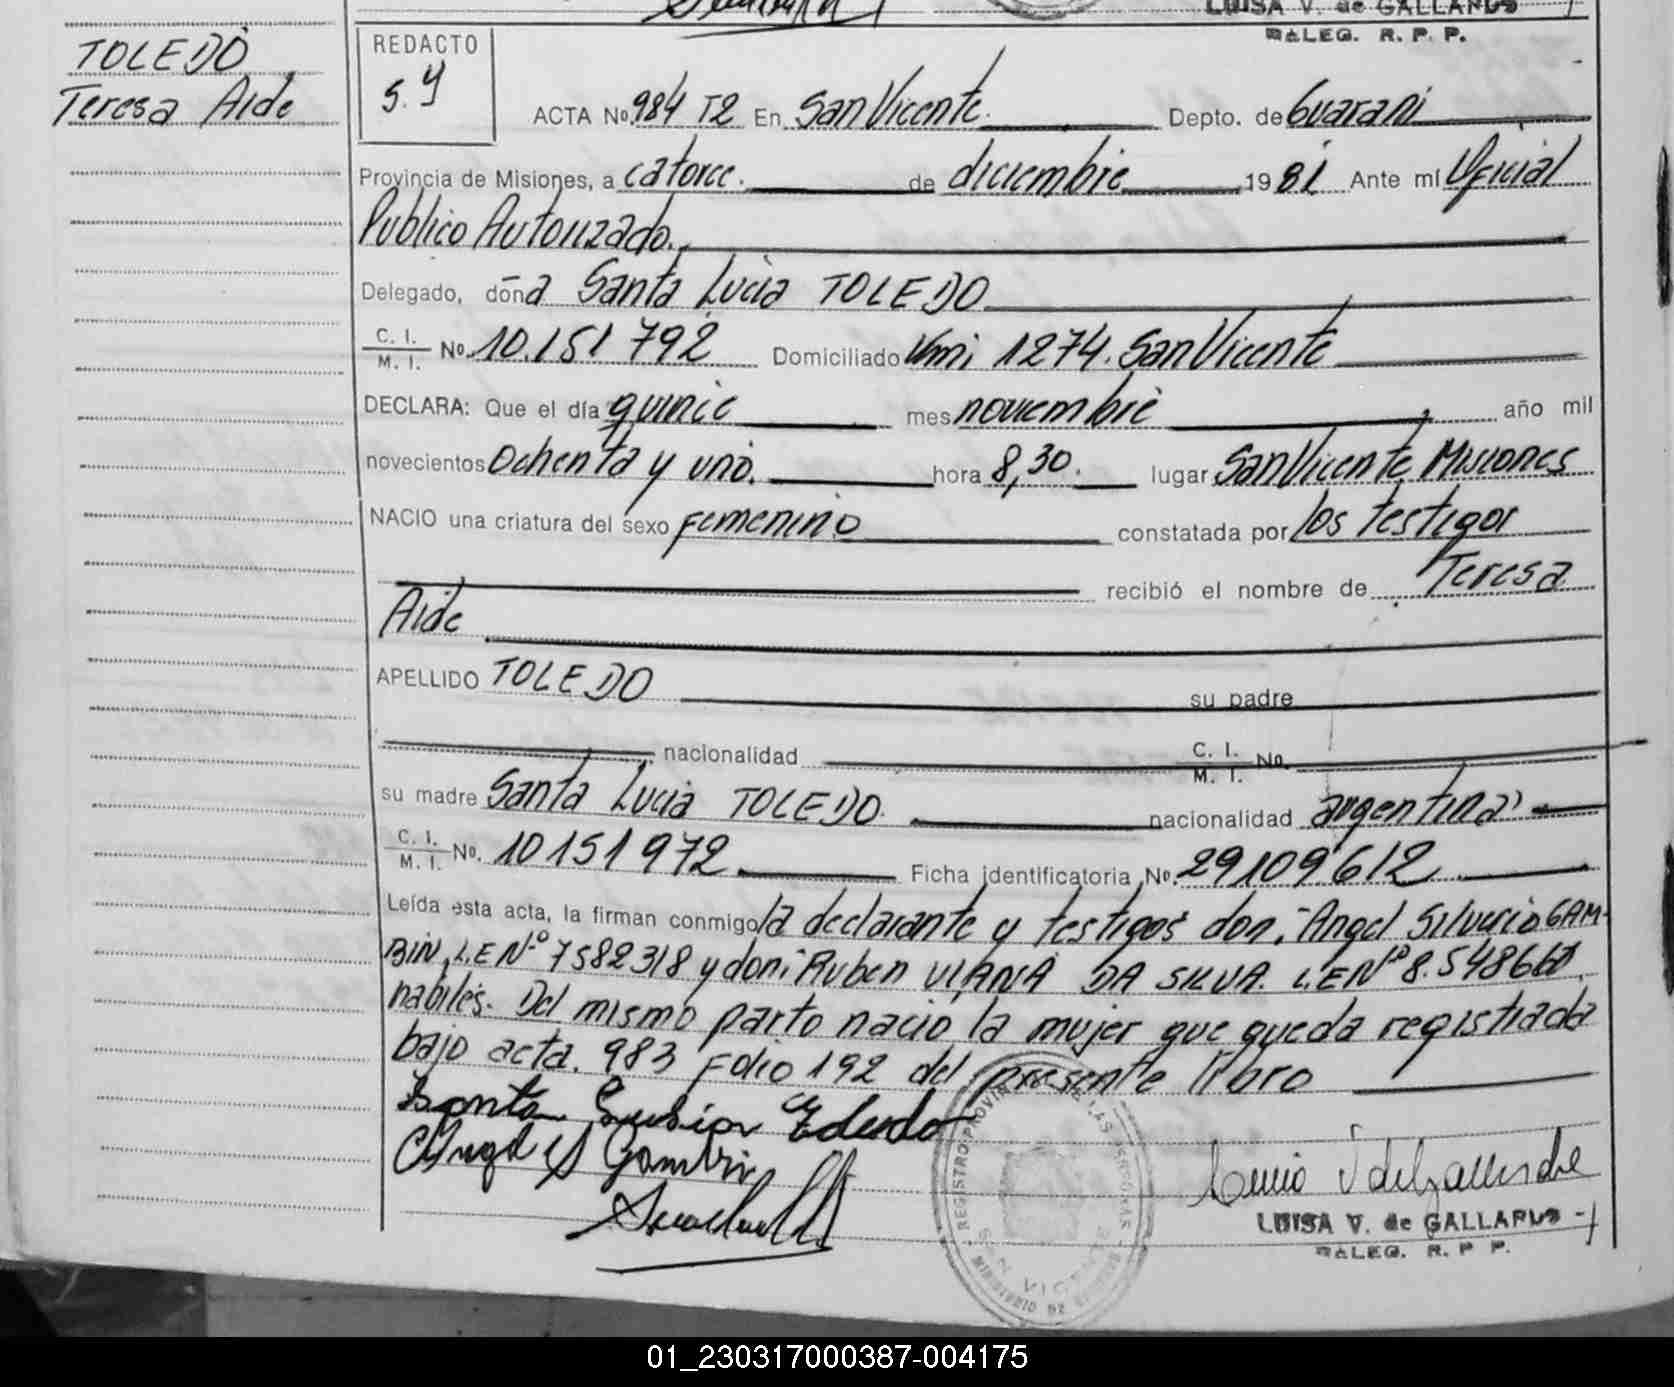 LUISA V. de GALLARUS
DALEG. R. P. P.
TOLEDO
Teresa Aide
REDACTO
S. Y
ACTA No 984 T2 En San Vicente. Depto. de Guarani
Provincia de Misiones, a catorce. de diciembre 1981 Ante mí Oficial
Publico Autorizado.
Delegado, doña Santa Lucia TOLEDO
C. I. / M. I. No. 10.151 792 Domiciliado Kmi 1274. San Vicente
DECLARA: Que el día quince mes noviembre año mil
novecientos Ochenta y uno. hora 8,30. lugar San Vicente Misiones
NACIO una criatura del sexo femenino constatada por los testigos
recibió el nombre de Teresa
Aide
APELLIDO TOLEDO su padre
nacionalidad C. I. / M. I. No.
su madre Santa Lucia TOLEDO. nacionalidad argentina
C. I. / M. I. No. 10151972 Ficha identificatoria No. 29109612
Leída esta acta, la firman conmigo la declarante y testigos don, Angel Silverio GAM-
BIN, L.E Nº 7582318 y don: Ruben VIANA DA SILVA. L.E Nº 8.548660
habiles. Del mismo parto nacio la mujer que queda registrada
bajo acta. 983 Folio 192 del presente libro
Angel S Gambin
REGISTRO PROVINCIAL DE LAS PERSONAS
SAN VICENTE
MINISTERIO DE GOBIERNO
LUISA V. de GALLARUS
DALEG. R. P. P.
01_230317000387-004175